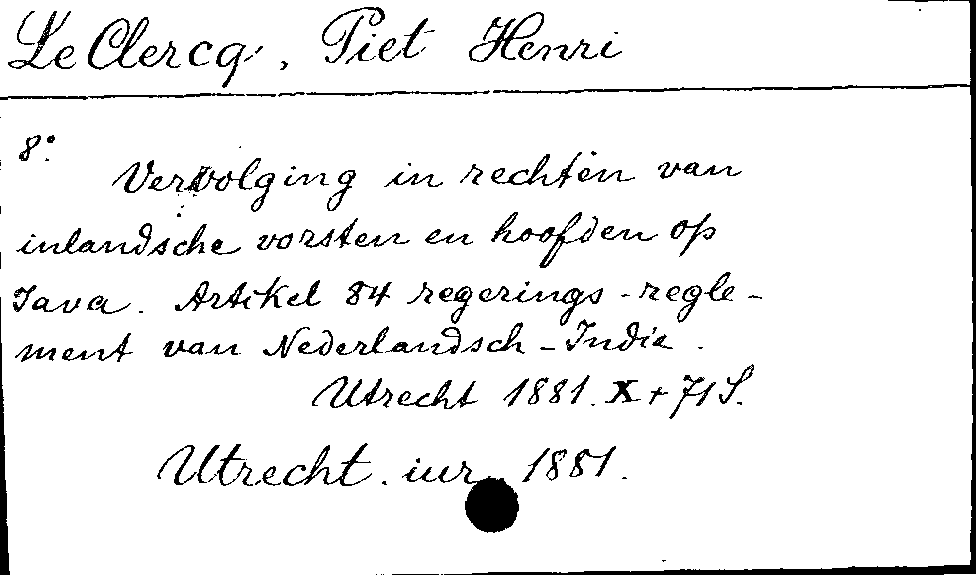 Le Clercq, Piet Henri
8°.
Vervolging in rechten van
inlandsche vorsten en hoofden op
Java. Artikel 84 regerings-regle-
ment van Nederlandsch-Indie.
Utrecht 1881. X + 71 S.
Utrecht. iur. 1881.